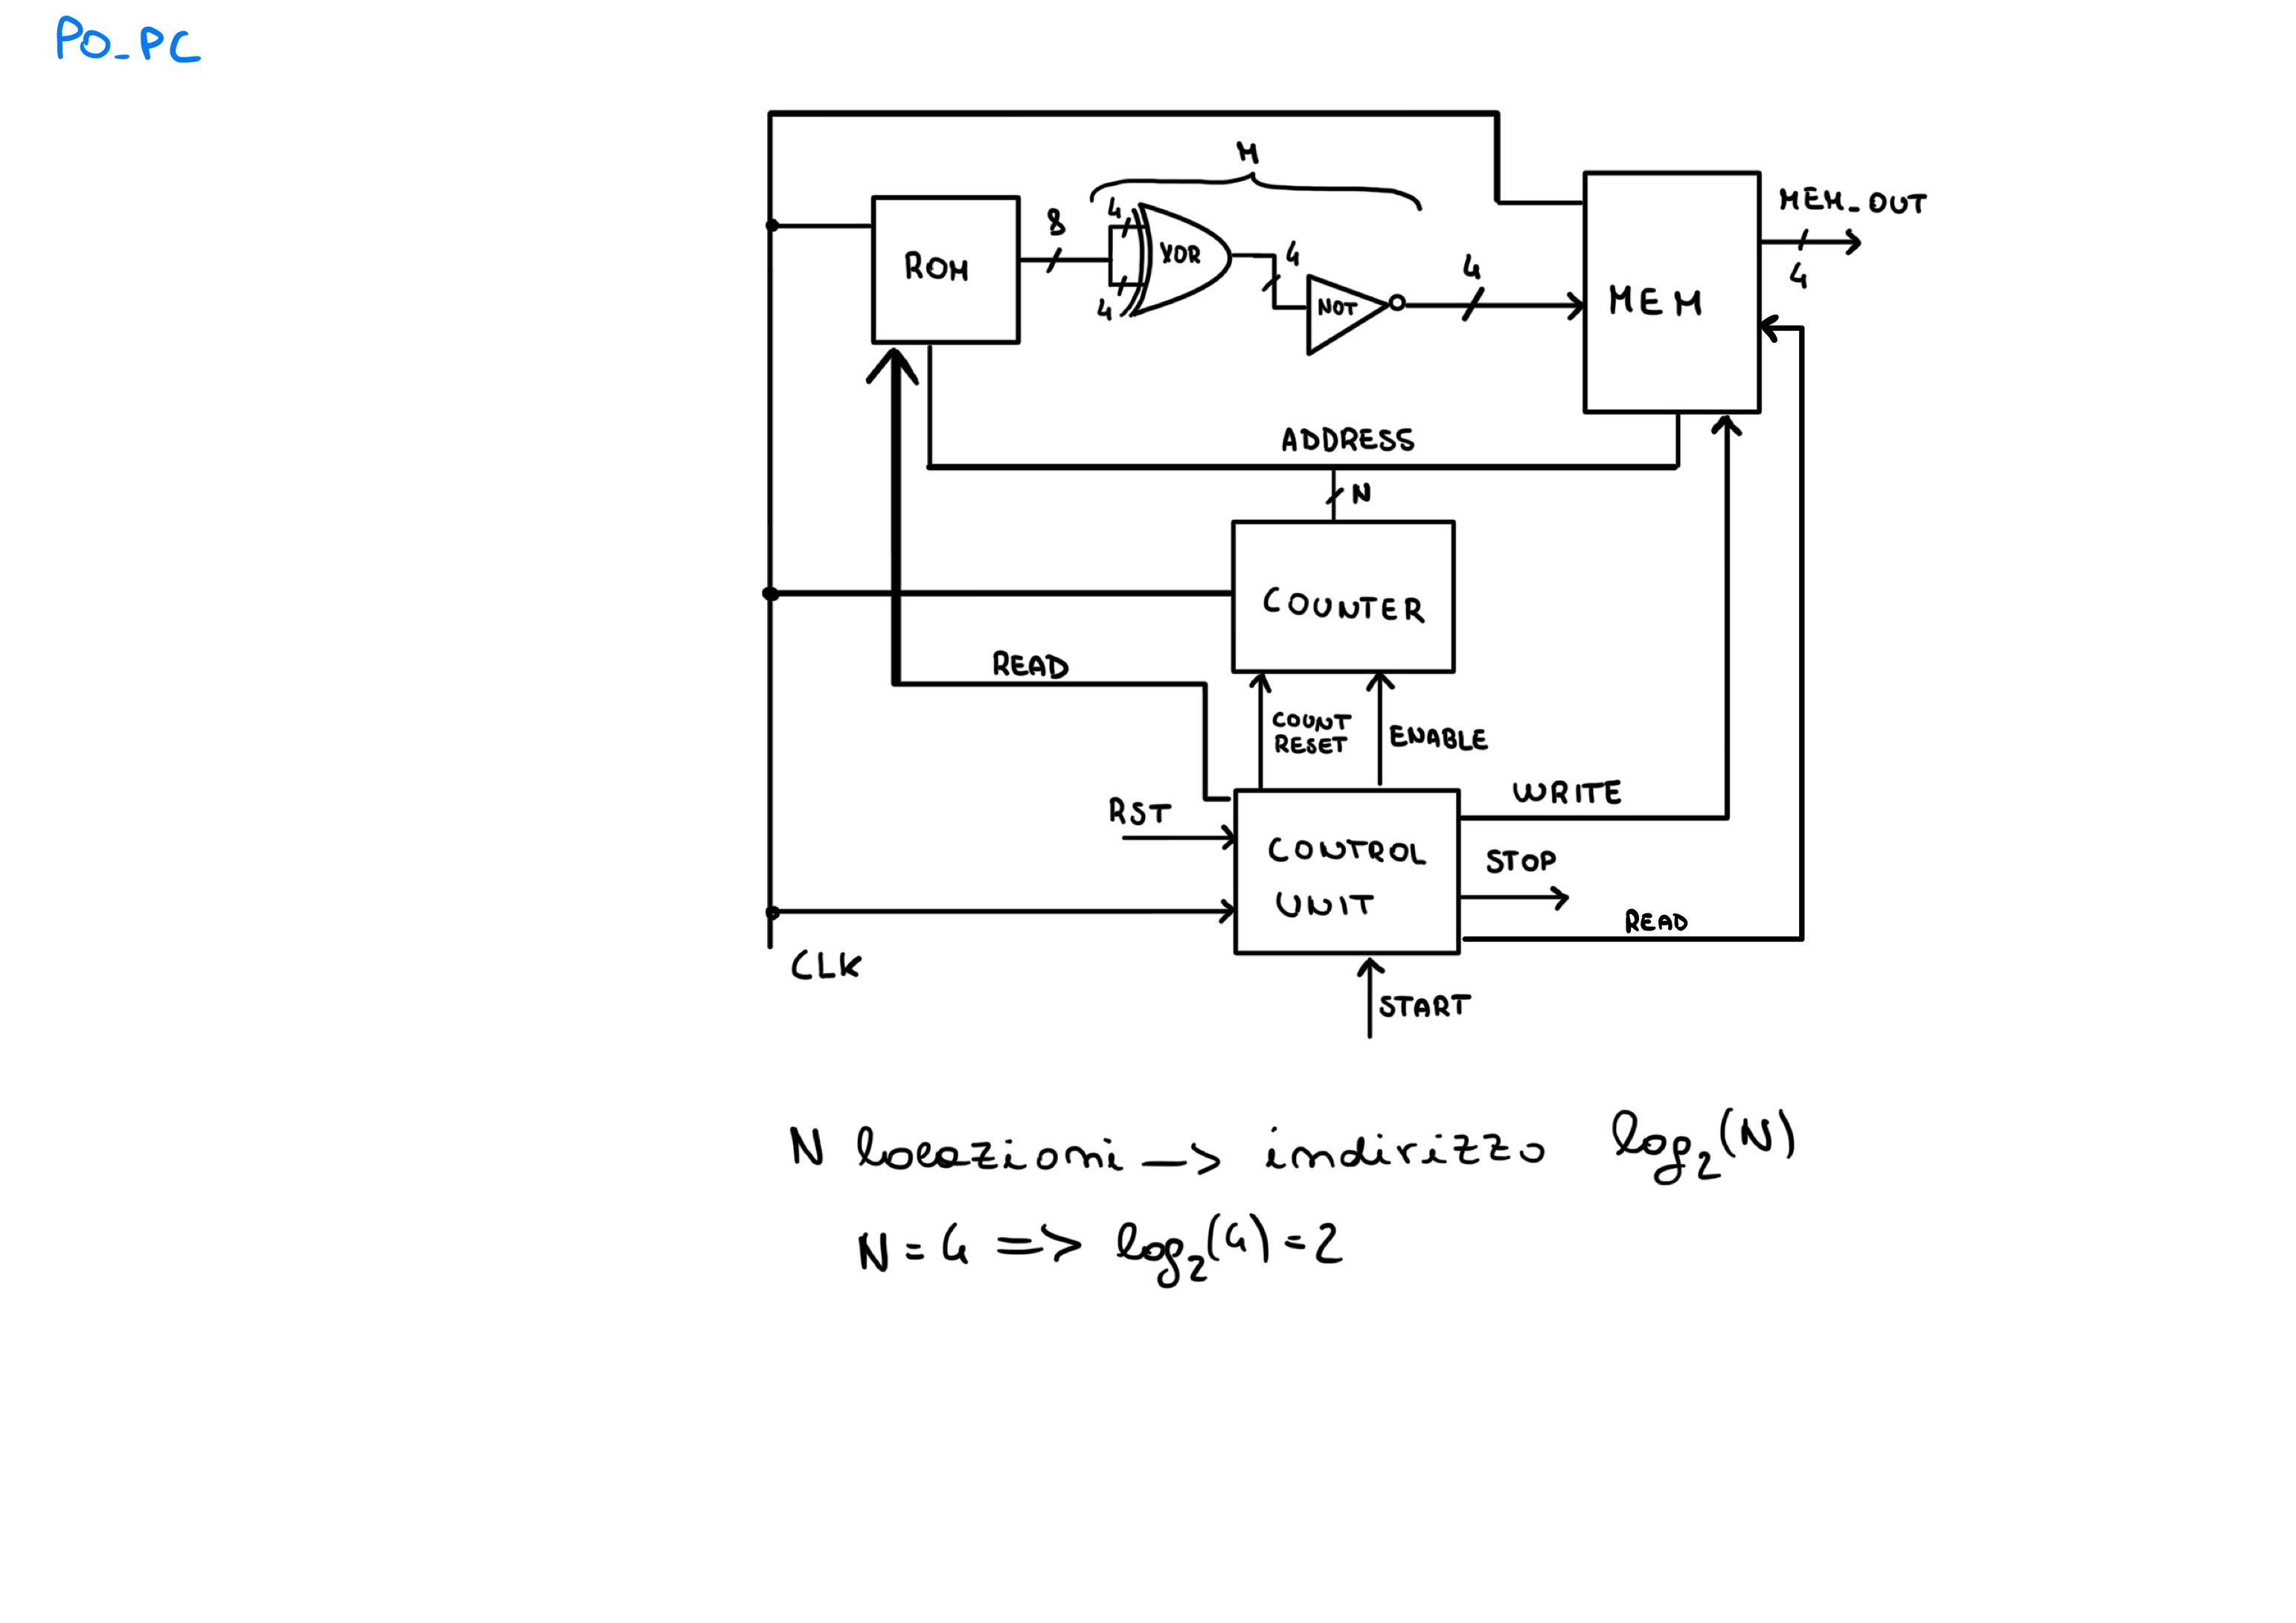 PO_PC
M
8
4
4
ROM
XOR
4
NOT
4
MEM
MEM_OUT
4
ADDRESS
N
COUNTER
READ
COUNT
RESET
ENABLE
RST
CONTROL
UNIT
WRITE
STOP
READ
CLK
START
N locazioni —> indirizzo log₂(N)
N = 4 => log₂(4) = 2